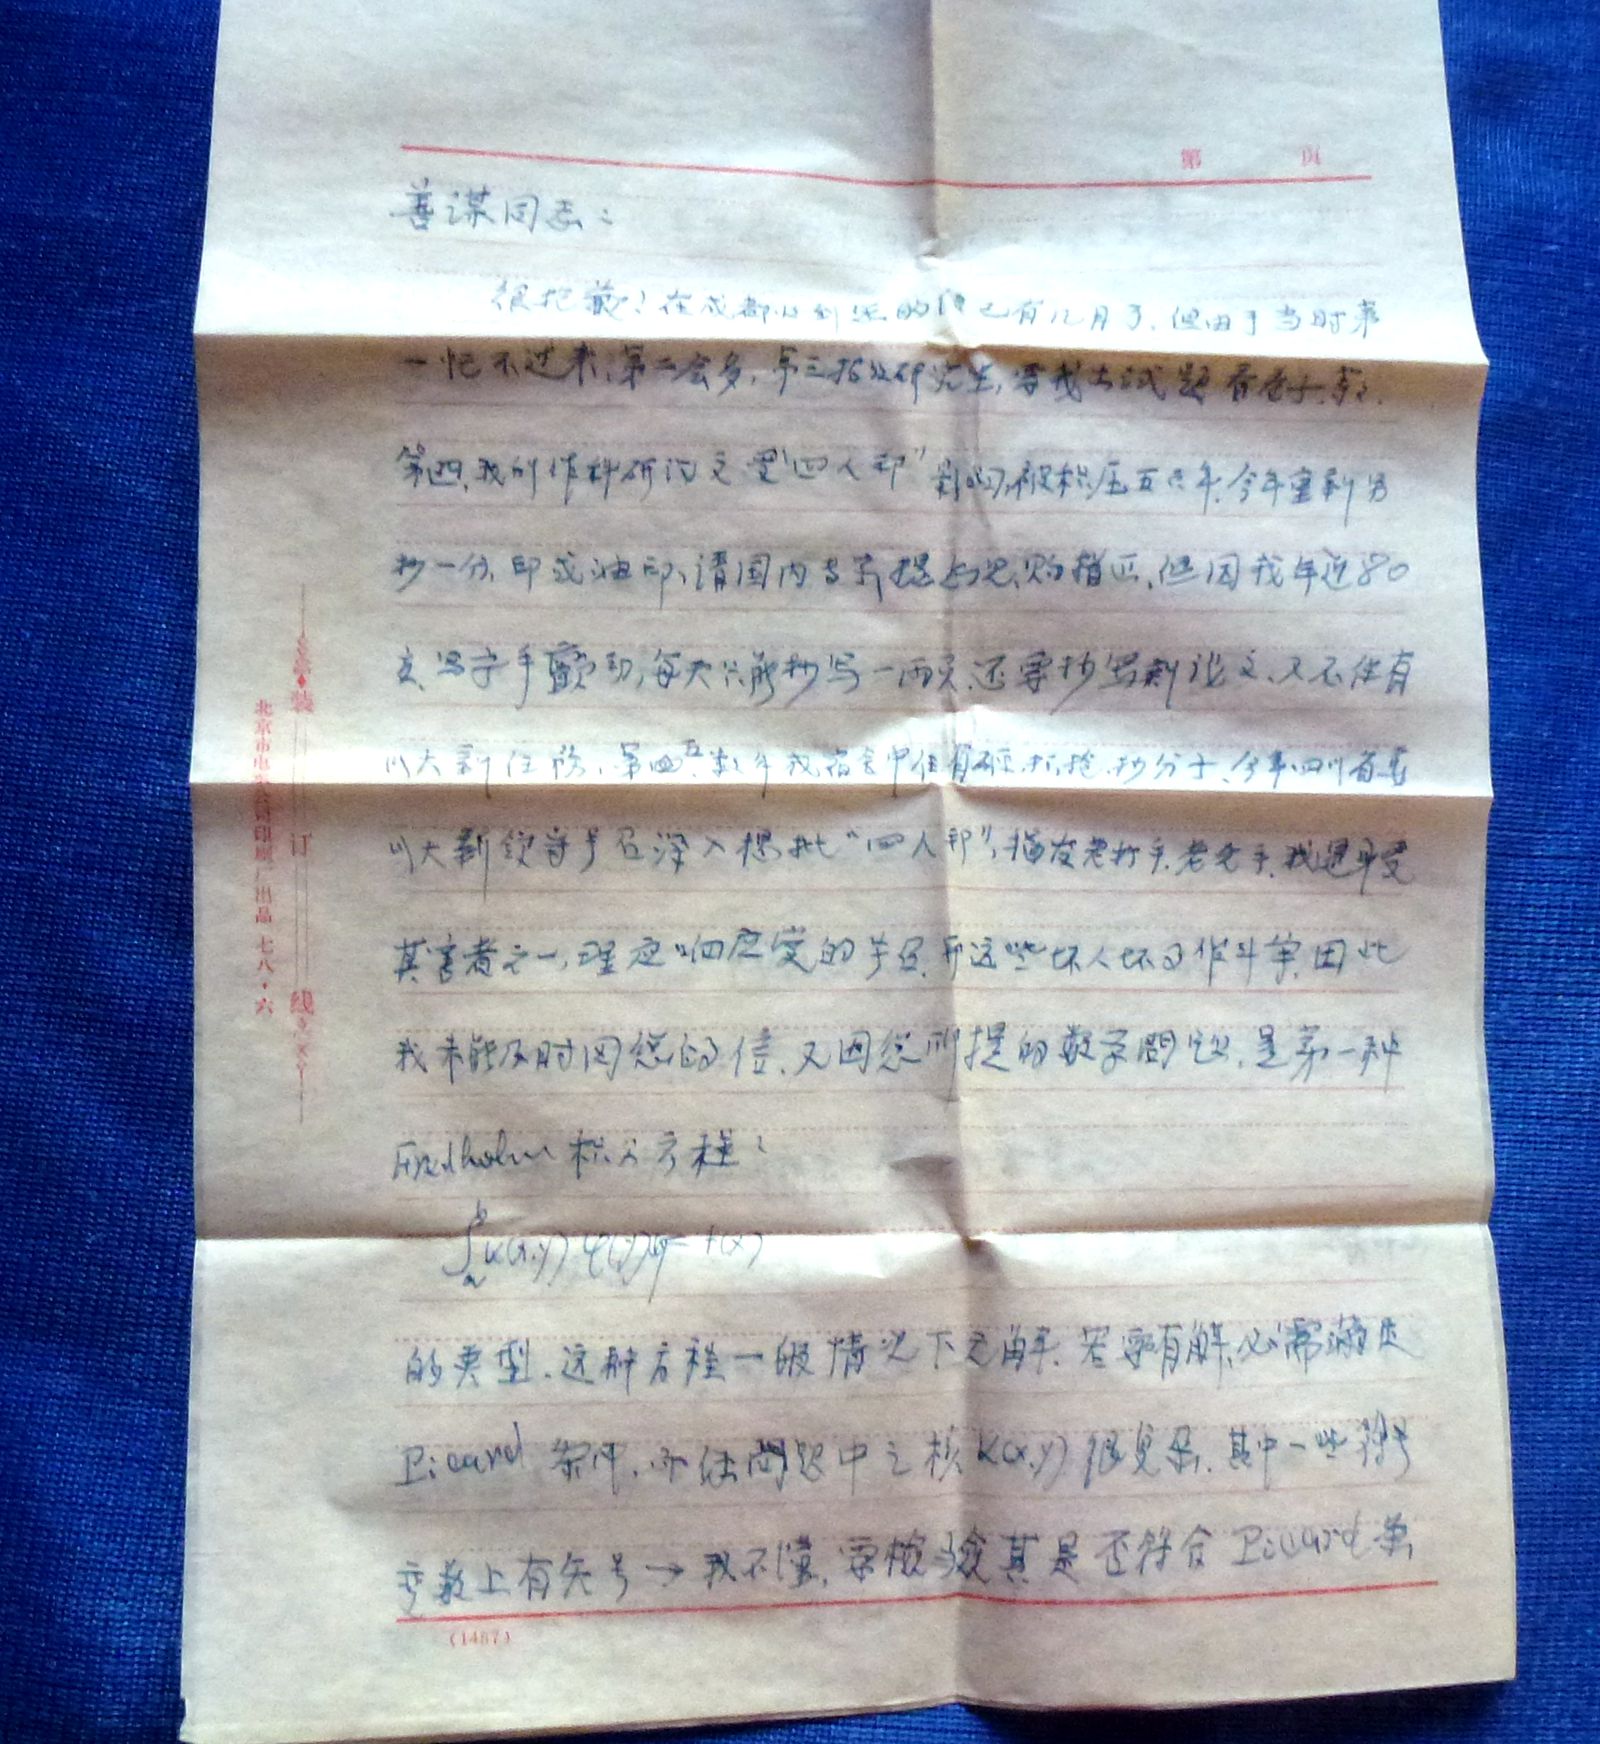 第 页
善谋同志：
很抱歉！在成都收到您的信已有几月了，但由于当时第
一忙不过来，第二会多，第三招收研究生，要我出试题看卷子，
第四，我所作科研论文受“四人帮”影响，被积压五六年，今年重新另
抄一份，印成油印，请国内专家提意见，赐指正，但因我年近80
写字手颤动，每天只能抄写一两页，还要抄写新论文，又不住有
川大新任务，第四五，数年我宿舍中住有砸，抓，抢，抄分子，今年四川省委
川大新领导号召深入揭批“四人帮”，揭发老打手，老先手，我是身受
其害者之一，理应响应党的号召，和这些坏人坏事作斗争，因此
我未能及时回您的信，又因您所提的数学问题，是第一种
Fredholm 积分方程：
∫ₐᵇK(x,y)φ(y)dy=f(x)
的类型，这种方程一般情况下无解，若要有解，必需满足
Picard 条件，而你问题中之核K(x,y)很复杂，其中一些符号
变数上有矢号→我不懂，要检验其是否符合Picard条
装 订 线
印刷厂出品 七八·六
(1487)